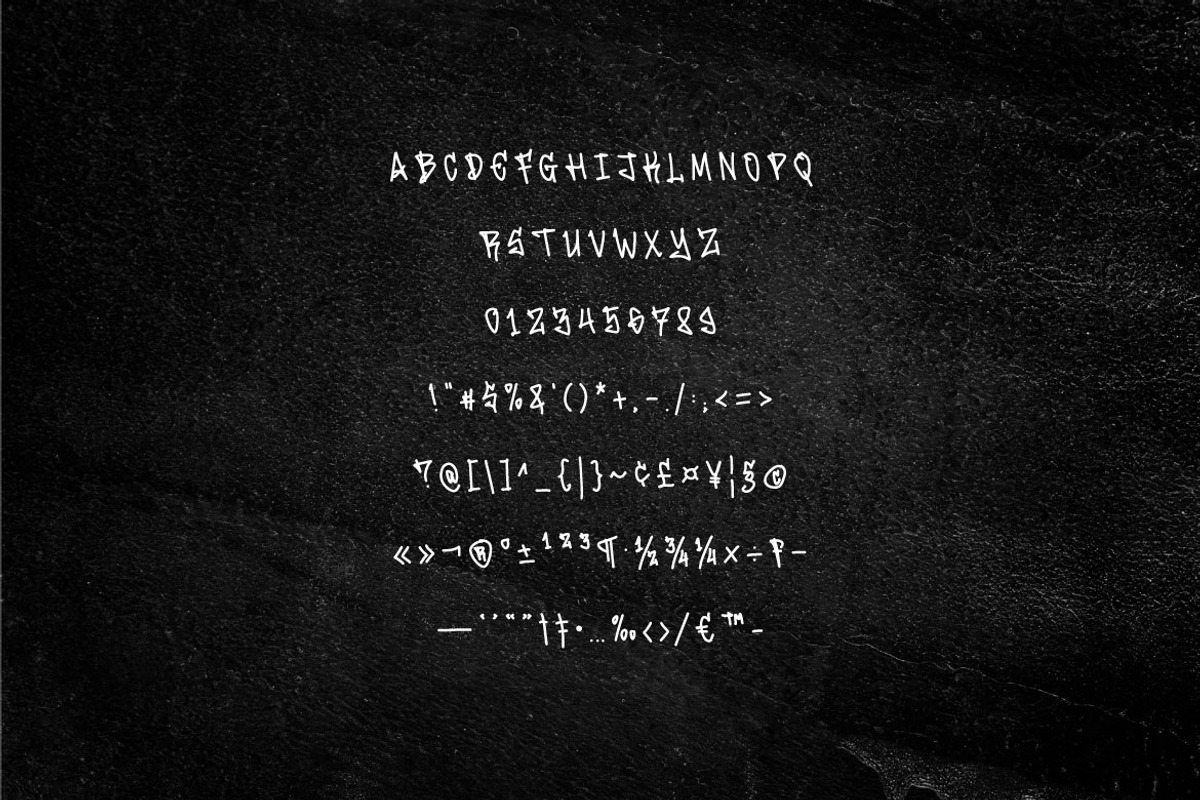 ABCDEFGHIJKLMNOPQ
RSTUVWXYZ
0123456789
!"#$%&'()*+,-./:;<=>
?@[\]^_{|}~¢£¤¥¦§©
«»¬®°±¹²³¶·½¾¼×÷₣–
—‘’“”†‡•…‰‹›⁄€™−